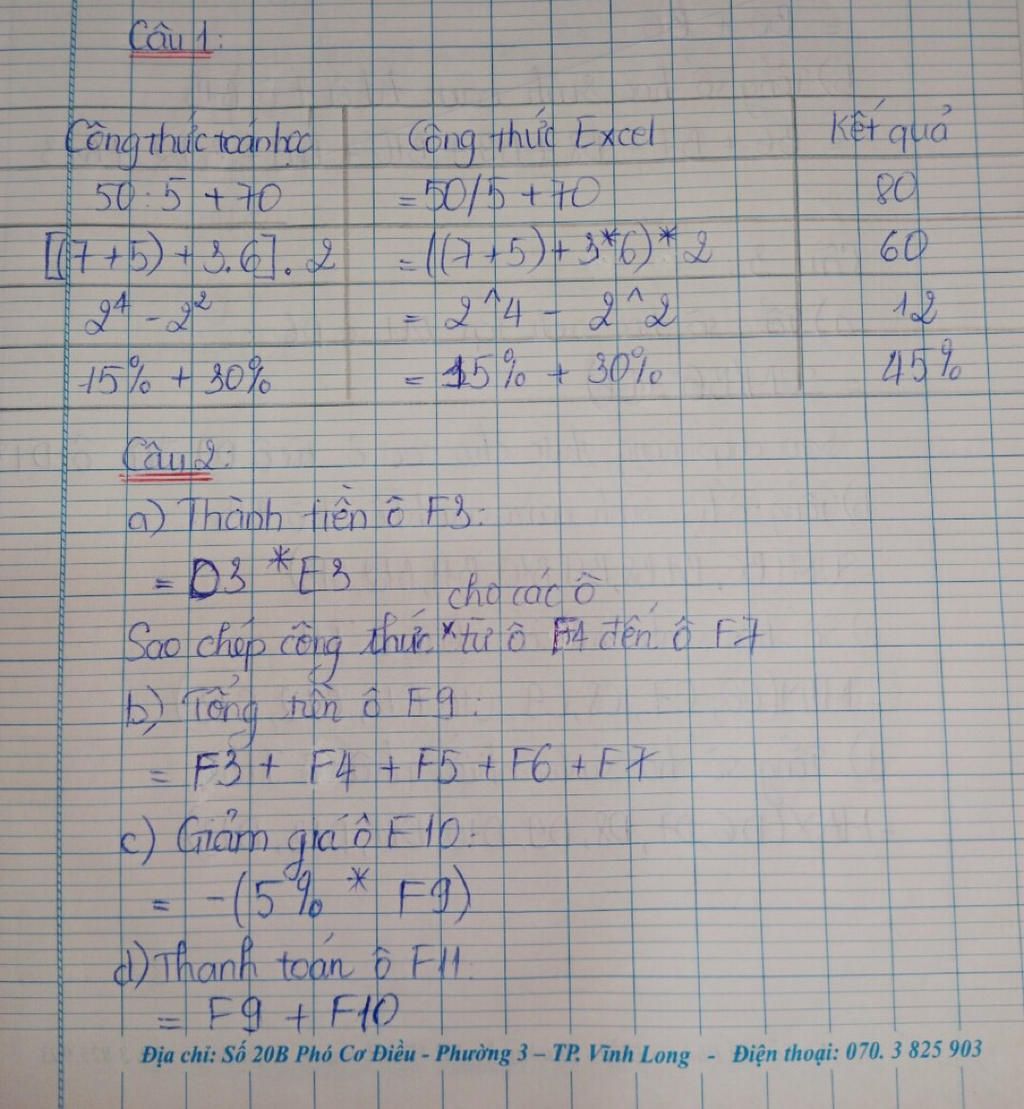 Câu 1:
Công thức toán học Công thức Excel Kết quả
50 : 5 + 70 = 50/5 + 70 80
[(7+5) + 3.6] . 2 = ((7+5) + 3*6)* 2 60
2⁴ - 2² = 2^4 - 2^2 12
15% + 30% = 15% + 30% 45%
Câu 2:
a) Thành tiền ô F3:
= D3 * E3
cho các ô
Sao chép công thức * từ ô F4 đến ô F7
b) Tổng tiền ô F9:
= F3 + F4 + F5 + F6 + F7
c) Giảm giá ô F10:
= -(5% * F9)
d) Thanh toán ô F11:
= F9 + F10
Địa chỉ: Số 20B Phó Cơ Điều - Phường 3 – TP. Vĩnh Long - Điện thoại: 070. 3 825 903